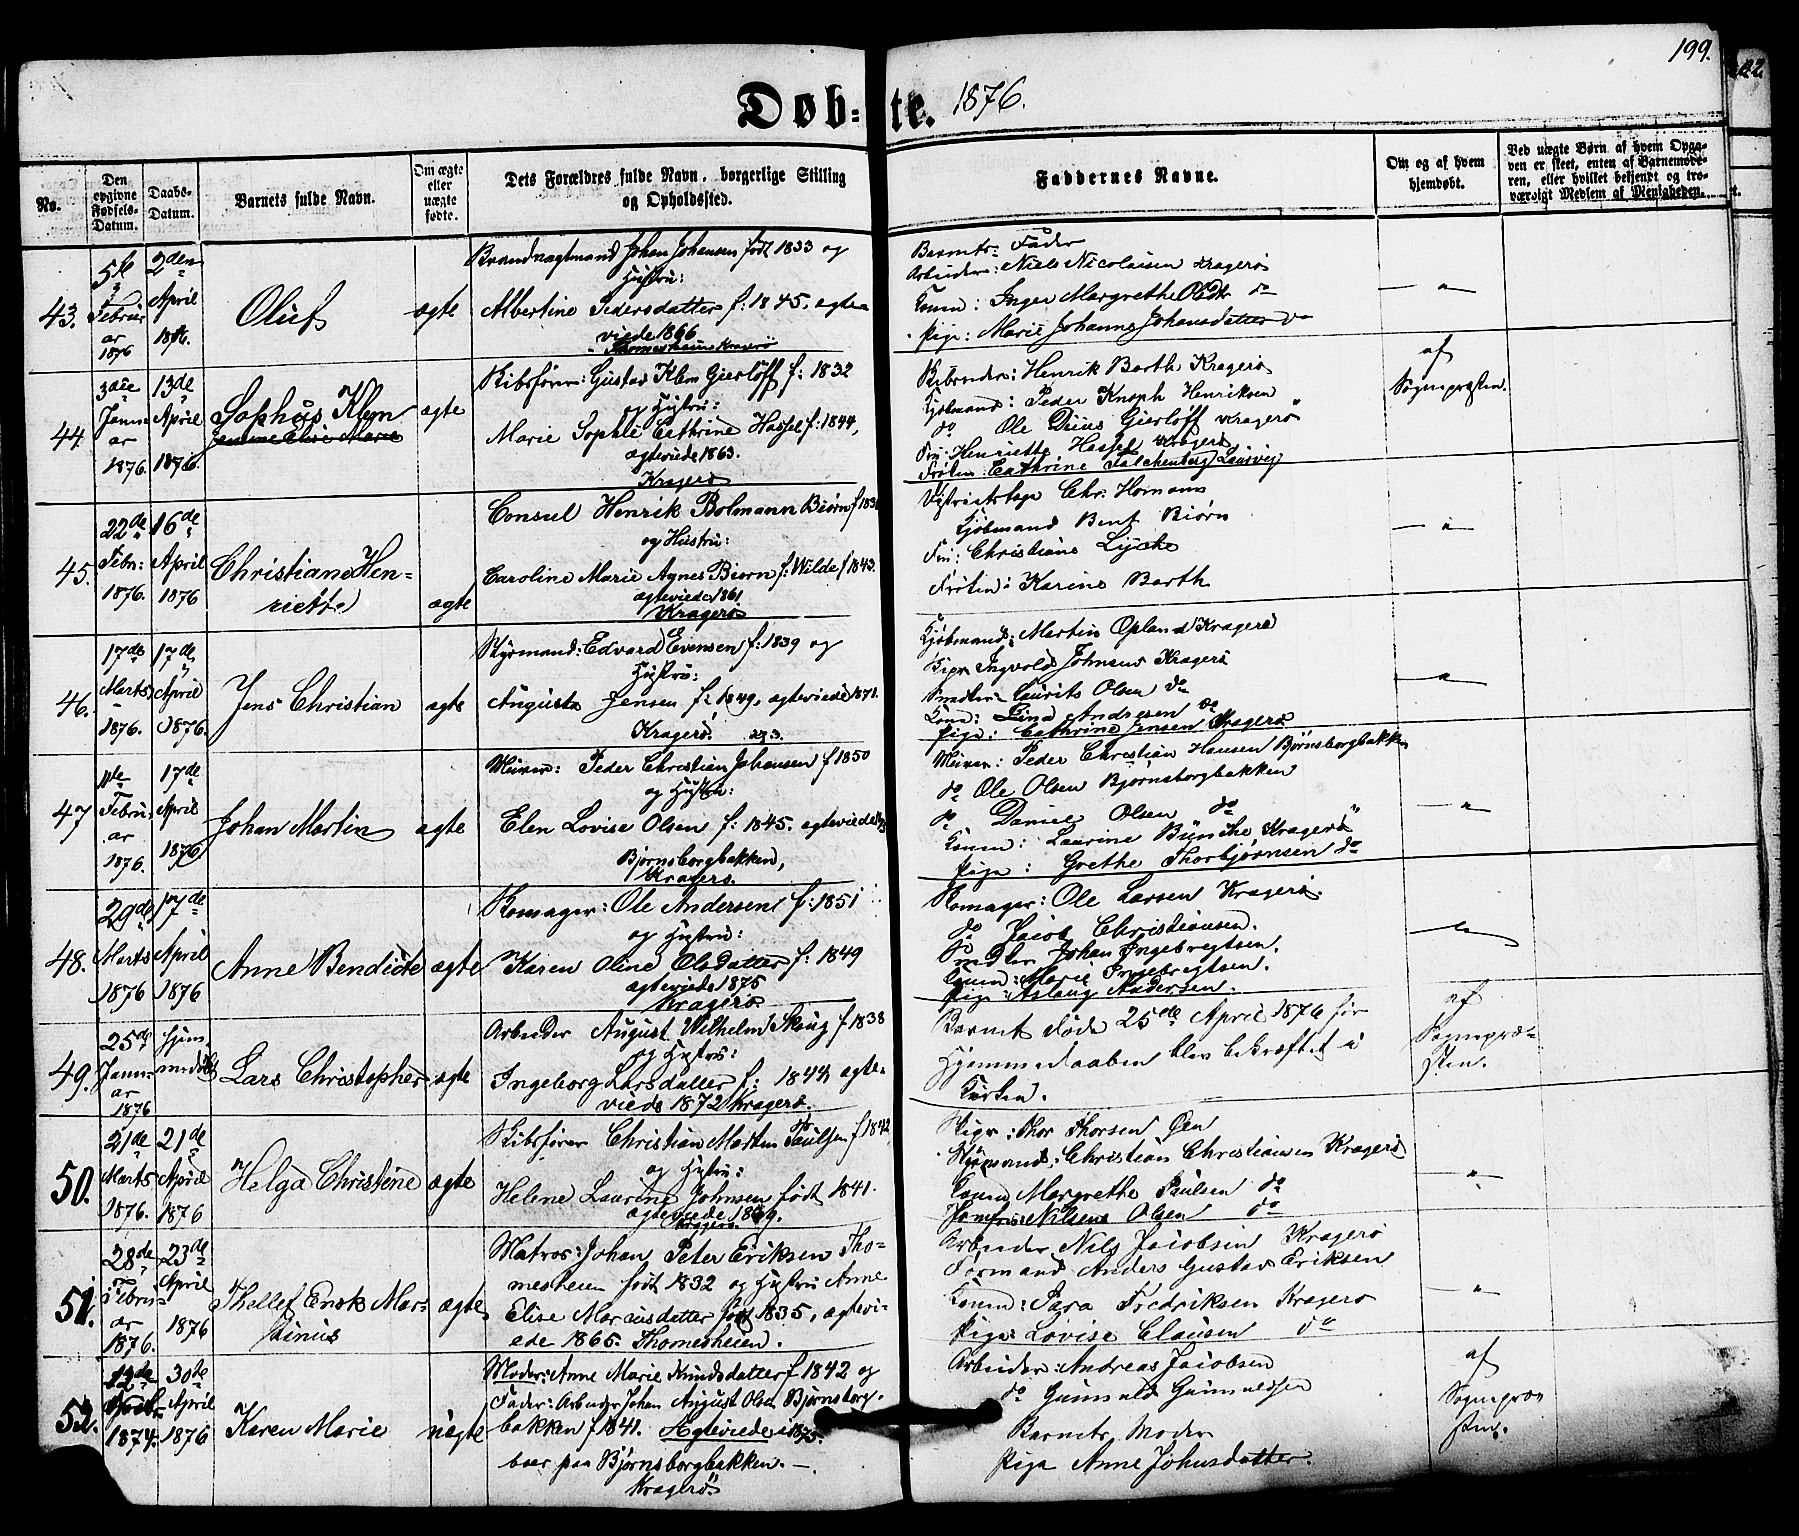 199.
Døb=te. 1876.
No.
Den opgivne Fødsels-Datum.
Daabs-Datum.
Barnets fulde Navn.
Om ægte eller uægte fødte.
Dets Forældres fulde Navn, borgerlige Stilling og Opholdssted.
Faddernes Navne.
Om og af hvem hjemdøbt.
Ved uægte Børn af hvem Opgaven er skeet, enten af Barnemoderen, eller hvilket bekjendt og troværdigt Medlem af Menigheden.
43.
5te Februar 1876
2den April 1876.
Oluf
ægte
Brandvagtmand Johan Johansen født 1833 og
Hustru:
Albertine Pedersdatter f: 1845. ægte
viede 1866
Thomesheien Kragerö
Barnets Fader
Arbeider: Niels Nicolaisen Kragerö
Konen: Inger Margrethe Oldtr do
Pige: Marie Johanne Johansdatter do
44.
3die Januar 1876.
13de April 1876.
Sophus Klem
ægte
Skibsfører: Gustav Klem Gierløff f: 1832
og Hustru:
Marie Sophie Cathrine Hassel f: 1844,
ægteviede 1863.
Kragerö
Skibsreder: Henrik Barth Kragerö
Kjøbmand: Peder Knoph Henriksen
do Ole Dius Gierløff Kragerö
Fru: Henriette Hassel Kragerö
Frøken: Cathrine Falckenberg Laurvig
af Sognepræsten.
45.
22de Febr: 1876.
16de April 1876
Christiane Henriette
ægte
Consul Henrik Bolmann Biørn f 183
og Hustru:
Caroline Marie Agnes Biørn f: Wilde f 1843.
ægteviede 1861
Kragerö
Distriktslæge Chr. Homann
Kjøbmand Bent Biørn
Fru: Christiane Lycke
Frøken: Karine Barth
46.
17de Marts 1876.
17de April 1876.
Jens Christian
ægte
Styrmand: Edvard Evensen f: 1839 og
Hustru:
Auguste Jensen f: 1849, ægteviede 1871.
Kragerö.
Kjøbmand: Martin Opland Kragerö
Pige Ingvold Johnsens Kragerö
Snedker Laurits Olsen do
Kone: Lina Andresen do
Pige: Cathrine Jensen Kragerö
47
11te Februar 1876.
17de April 1876
Johan Martin
ægte
Murer: Peder Christian Johansen f 1850
og Hustru:
Elen Lovise Olsen f: 1845. ægteviede
Bjørnsborgbakken,
Kragerö.
Murer: Peder Christian Hansen Bjørnsborgbakken
do Ole Olsen Bjørnsborgbakken
do Daniel Olsen do
Konen: Laurine Bünche Kragerö
Pige: Grethe Thorbjørnsen do
48.
29de Marts 1876
17de April 1876
Anne Bendicte
ægte
Skomager: Ole Andersen f: 1851
og Hustru:
Karen Oline Olsdatter f: 1849
ægteviede 1875
Kragerö
Skomager: Ole Larsen Kragerö.
do Jacob Christiansen.
Snedker Johan Ingebregtsen.
Konen: Marie Ingebregtsen.
Pige: Aslaug Andersen.
49.
25de Januar 1876
hjemmedøbt
Lars Christopher
ægte
Arbeider August Wilhelm Skoug f 1838
og Hustru:
Ingeborg Larsdatter f: 1844 ægte-
viede 1872 Kragerö.
Barnet døde 25de April 1876 før
Hjemmedaaben blev bekræftet i
Kirken.
af Sognepræsten.
50.
21de Marts 1876.
21de April 1876
Helga Christine
ægte
Skibsfører Christian Morten Paulsen f 1842
og Hustru:
Helene Laurine Johnsen født 1841.
ægteviede 1869.
Kragerö
Pige: Thor Thorsen Øen
Styrmand: Christian Christiansen Kragerö
Konen Margrethe Paulsen do
Jomfru Nilsene Olsen do
51.
28de Februar 1876.
23de April 1876
Thellef Enok Marsinius
ægte
Matros: Johan Peter Eriksen Tho-
mesheien født 1832 og Hustru Anne
Elise Marcusdatter født 1835, ægtevi-
ede 1865. Thomesheien.
Arbeider Nils Jacobsen Kragerö
Formand Anders Gustav Eriksen
Konen: Sara Fredriksen Kragerö
Pige: Lovise Clausen do
52.
12de 1874.
30te April 1876
Karen Marie
uægte
Moder: Anne Marie Knudsdatter f 1842 og
Fader: Arbeider Johan August Olsen Bjørnsborg-
bakken f 1841. Ægteviede 1875.
boer paa Bjørnsborgbakken.
Kragerö.
Arbeider: Andreas Jacobsen
do Gunvald Gunvaldsen
Barnets Moder
Pige Anne Johnsdatter.
af Sognepræsten.